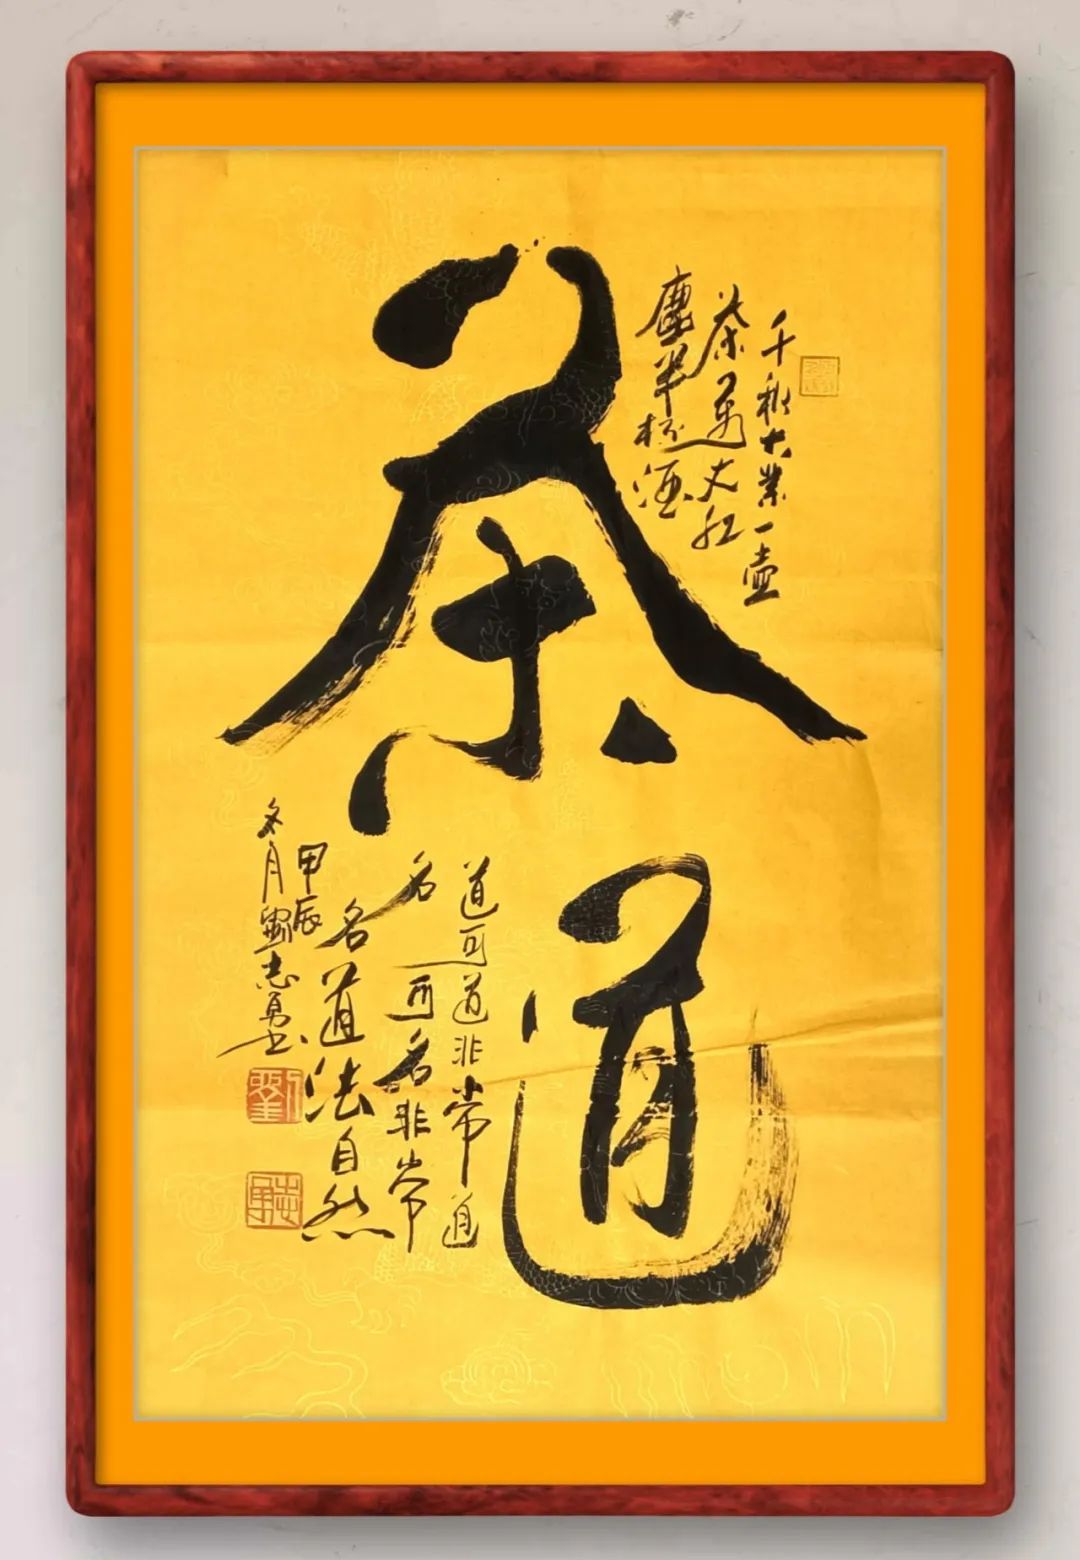 茶道
千秋大業一壺
茶萬丈紅
塵半杯酒
道可道非常道
名可名非常
名道法自然
甲辰
冬月劉志勇书
劉
志勇